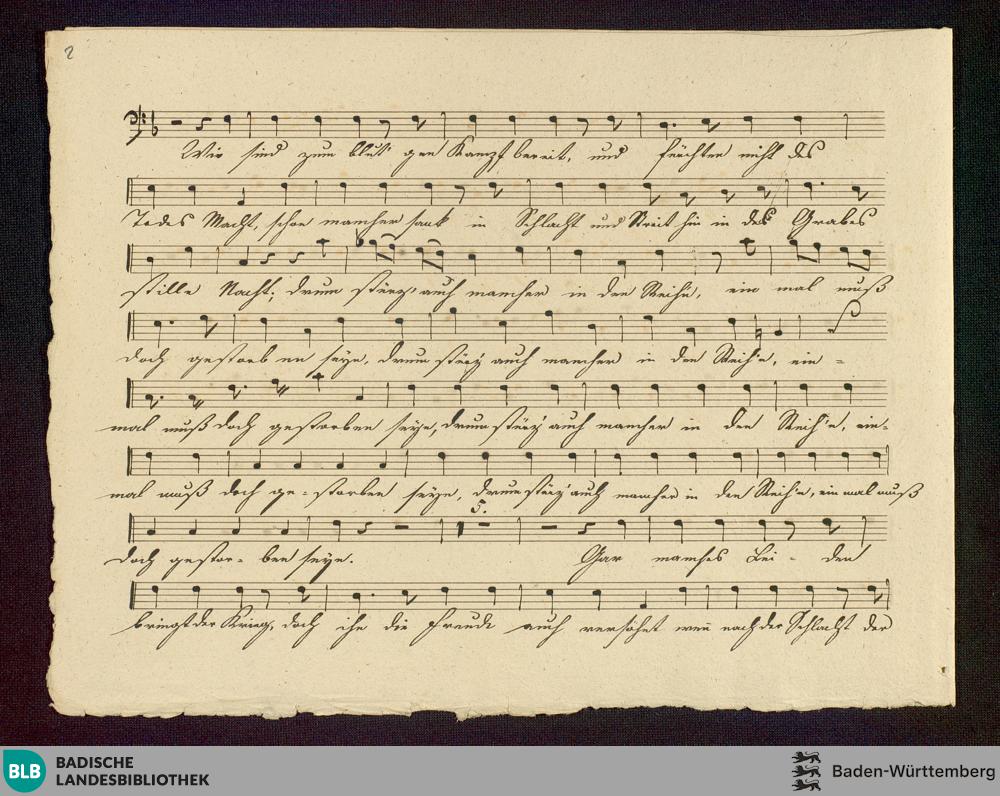 2
Wir sind zum blut' gen Kampf bereit, und fürchten nicht des
Todes Macht, schon mancher sank in Schlacht und Streit hin in des Grabes
stille Nacht; drum stürz' auch mancher in den Reih'n, ein mal muß
doch gestorb en seyn, drum stürz' auch mancher in den Reih'n, ein-
mal muß doch gestorben seyn, drum stürz' auch mancher in den Reih'n, ein-
mal muß doch ge-storben seyn, drum stürz' auch mancher in den Reih'n, ein mal muß
5.
doch gestor- ben seyn. Gar manches Lei - den
bringt der Krieg, doch ihn die Freude auch versöhnt wenn nach der Schlacht der
BLB BADISCHE
LANDESBIBLIOTHEK
Baden-Württemberg